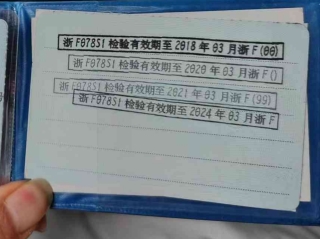 浙F078S1检验有效期至2018年03月浙F(00)
浙F078S1检验有效期至2020年03月浙F()
浙F078S1检验有效期至2021年03月浙F(99)
浙F078S1检验有效期至2024年03月浙F